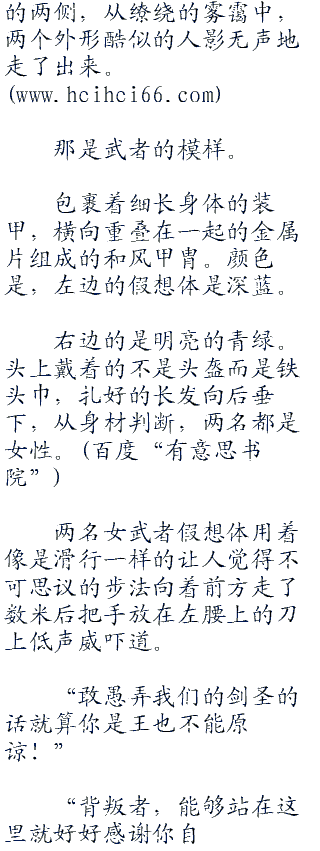 的两侧，从缭绕的雾霭中，
两个外形酷似的人影无声地
走了出来。
(www.hcihci66.com)
那是武者的模样。
包裹着细长身体的装
甲，横向重叠在一起的金属
片组成的和风甲胄。颜色
是，左边的假想体是深蓝。
右边的是明亮的青绿。
头上戴着的不是头盔而是铁
头巾，扎好的长发向后垂
下，从身材判断，两名都是
女性。(百度“有意思书
院”)
两名女武者假想体用着
像是滑行一样的让人觉得不
可思议的步法向着前方走了
数米后把手放在左腰上的刀
上低声威吓道。
“敢愚弄我们的剑圣的
话就算你是王也不能原
谅！”
“背叛者，能够站在这
里就好好感谢你自